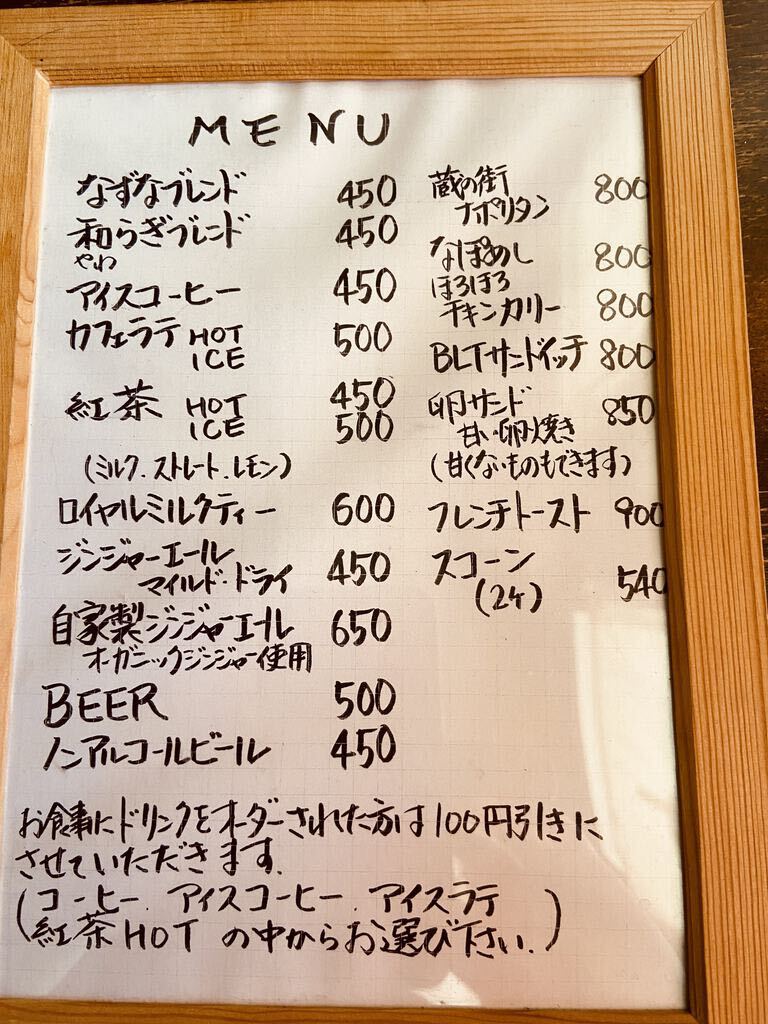 MENU
なずなブレンド 450
和らぎブレンド 450
やわ
アイスコーヒー 450
カフェラテ HOT 500
ICE
紅茶 HOT 450
ICE 500
(ミルク.ストレート.レモン)
ロイヤルミルクティー 600
ジンジャーエール 450
マイルド・ドライ
自家製ジンジャーエール 650
オーガニックジンジャー使用
BEER 500
ノンアルコールビール 450
蔵の街 800
ナポリタン
なぽめし 800
ほろほろ 800
チキンカリー
BLTサンドイッチ 800
卵サンド 850
甘い卵焼き
(甘くないものもできます)
フレンチトースト 900
スコーン 540
(2ケ)
お食事にドリンクをオーダーされた方は100円引きに
させていただきます.
(コーヒー.アイスコーヒー.アイスラテ
紅茶HOTの中からお選び下さい.)